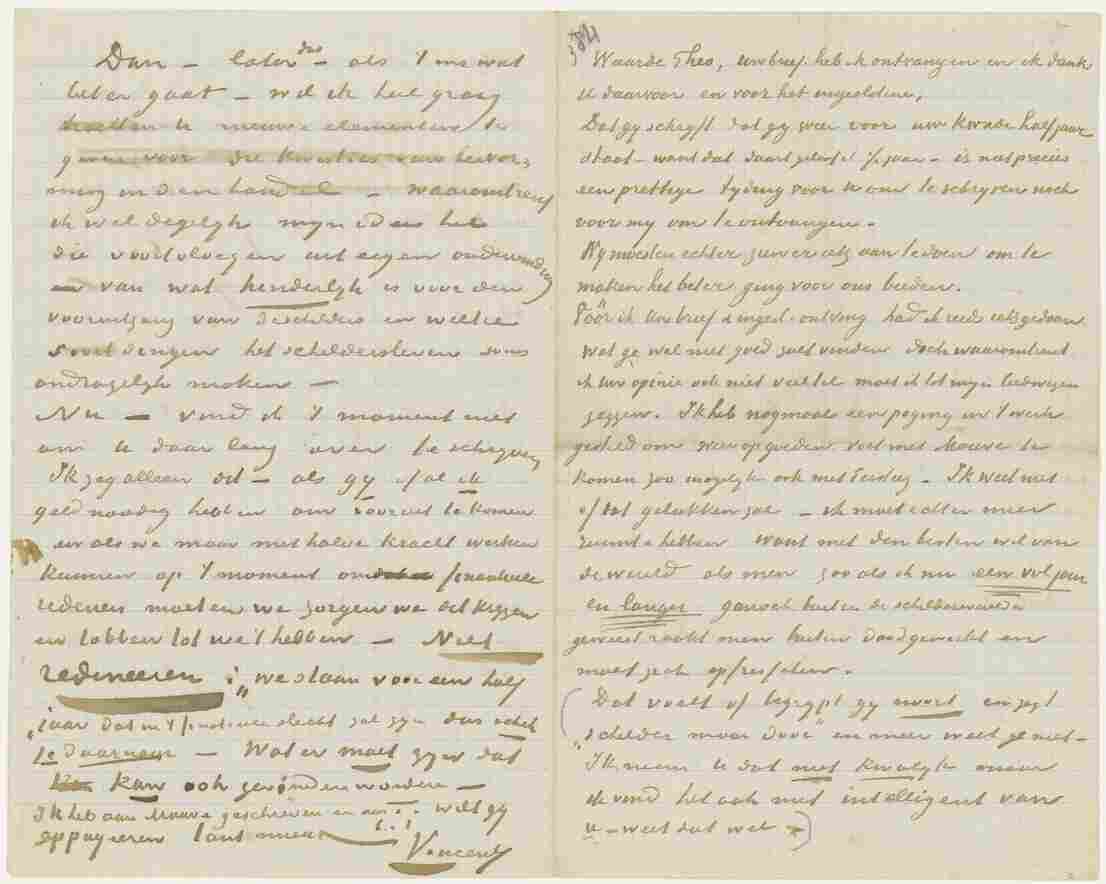 Dan – later dus – als 't me wat
beter gaat – wil ik heel graag
trachten U nieuwe elementen te
geven voor die kwesties van hervor-
ming in den handel – waaromtrent
ik wel degelijk mijn ideen heb
die voortvloeijen uit eigen ondervinding
van wat henderlijk is voor den
vooruitgang van de schilders en welke
soort dingen het schildersleven soms
ondragelijk maken –
Nu – vind ik 't moment niet
om U daar lang over te schrijven
Ik zeg alleen dit – als gij of als ik
geld noodig hebben om vooruit te komen
en als we maar met halve kracht werken
kunnen op 't moment om financieele
redenen moeten we zorgen we dit krijgen
en tobben tot we 't hebben – Niet
redeneeren: „we staan voor een half
„jaar dat in 't financieele slecht zal zijn dus acht
te daarnaar – Wat er moet zijn dat
kan ook gevonden worden –
Ik heb aan Mauve geschreven en aan T. wilt gij
appuyeeren tant mieux
t. à t.
Vincent
Waarde Theo, Uw brief heb ik ontvangen en ik dank
U daarvoor en voor het ingeslotene.
Dat gij schrijft dat gij weer voor uw kwade halfjaar
staat – want dat duurt geloof ik 1/2 jaar – is niet precies
een prettige tijding voor U om te schrijven noch
voor mij om te ontvangen.
Wij moesten echter zien er iets aan te doen om te
maken het beter ging voor ons beiden.
Vóór ik Uw brief & ingesl. ontving had ik reeds iets gedaan
wat ge wel niet goed zult vinden doch waaromtrent
ik Uw opinie ook niet veel tel moet ik tot mijn leedwezen
zeggen. Ik heb nogmaals een poging in 't werk
gesteld om weer op goeden voet met Mauve te
komen zoo mogelijk ook met Tersteeg – Ik weet niet
of dat gelukken zal – ik moet echter meer
ruimte hebben want met den besten wil van
de wereld als men zoo als ik nu een vol jaar
en langer genoeg buiten de schilderwereld
geweest raakt men buiten doodgewerkt en
moet zich opfrisschen.
(Dat voelt of begrijpt gij nooit en zegt
„schilder maar door“ en meer weet ge niet –
Ik neem U dat niet kwalijk maar
ik vind het ook niet intelligent van
U – weet dat wel –)